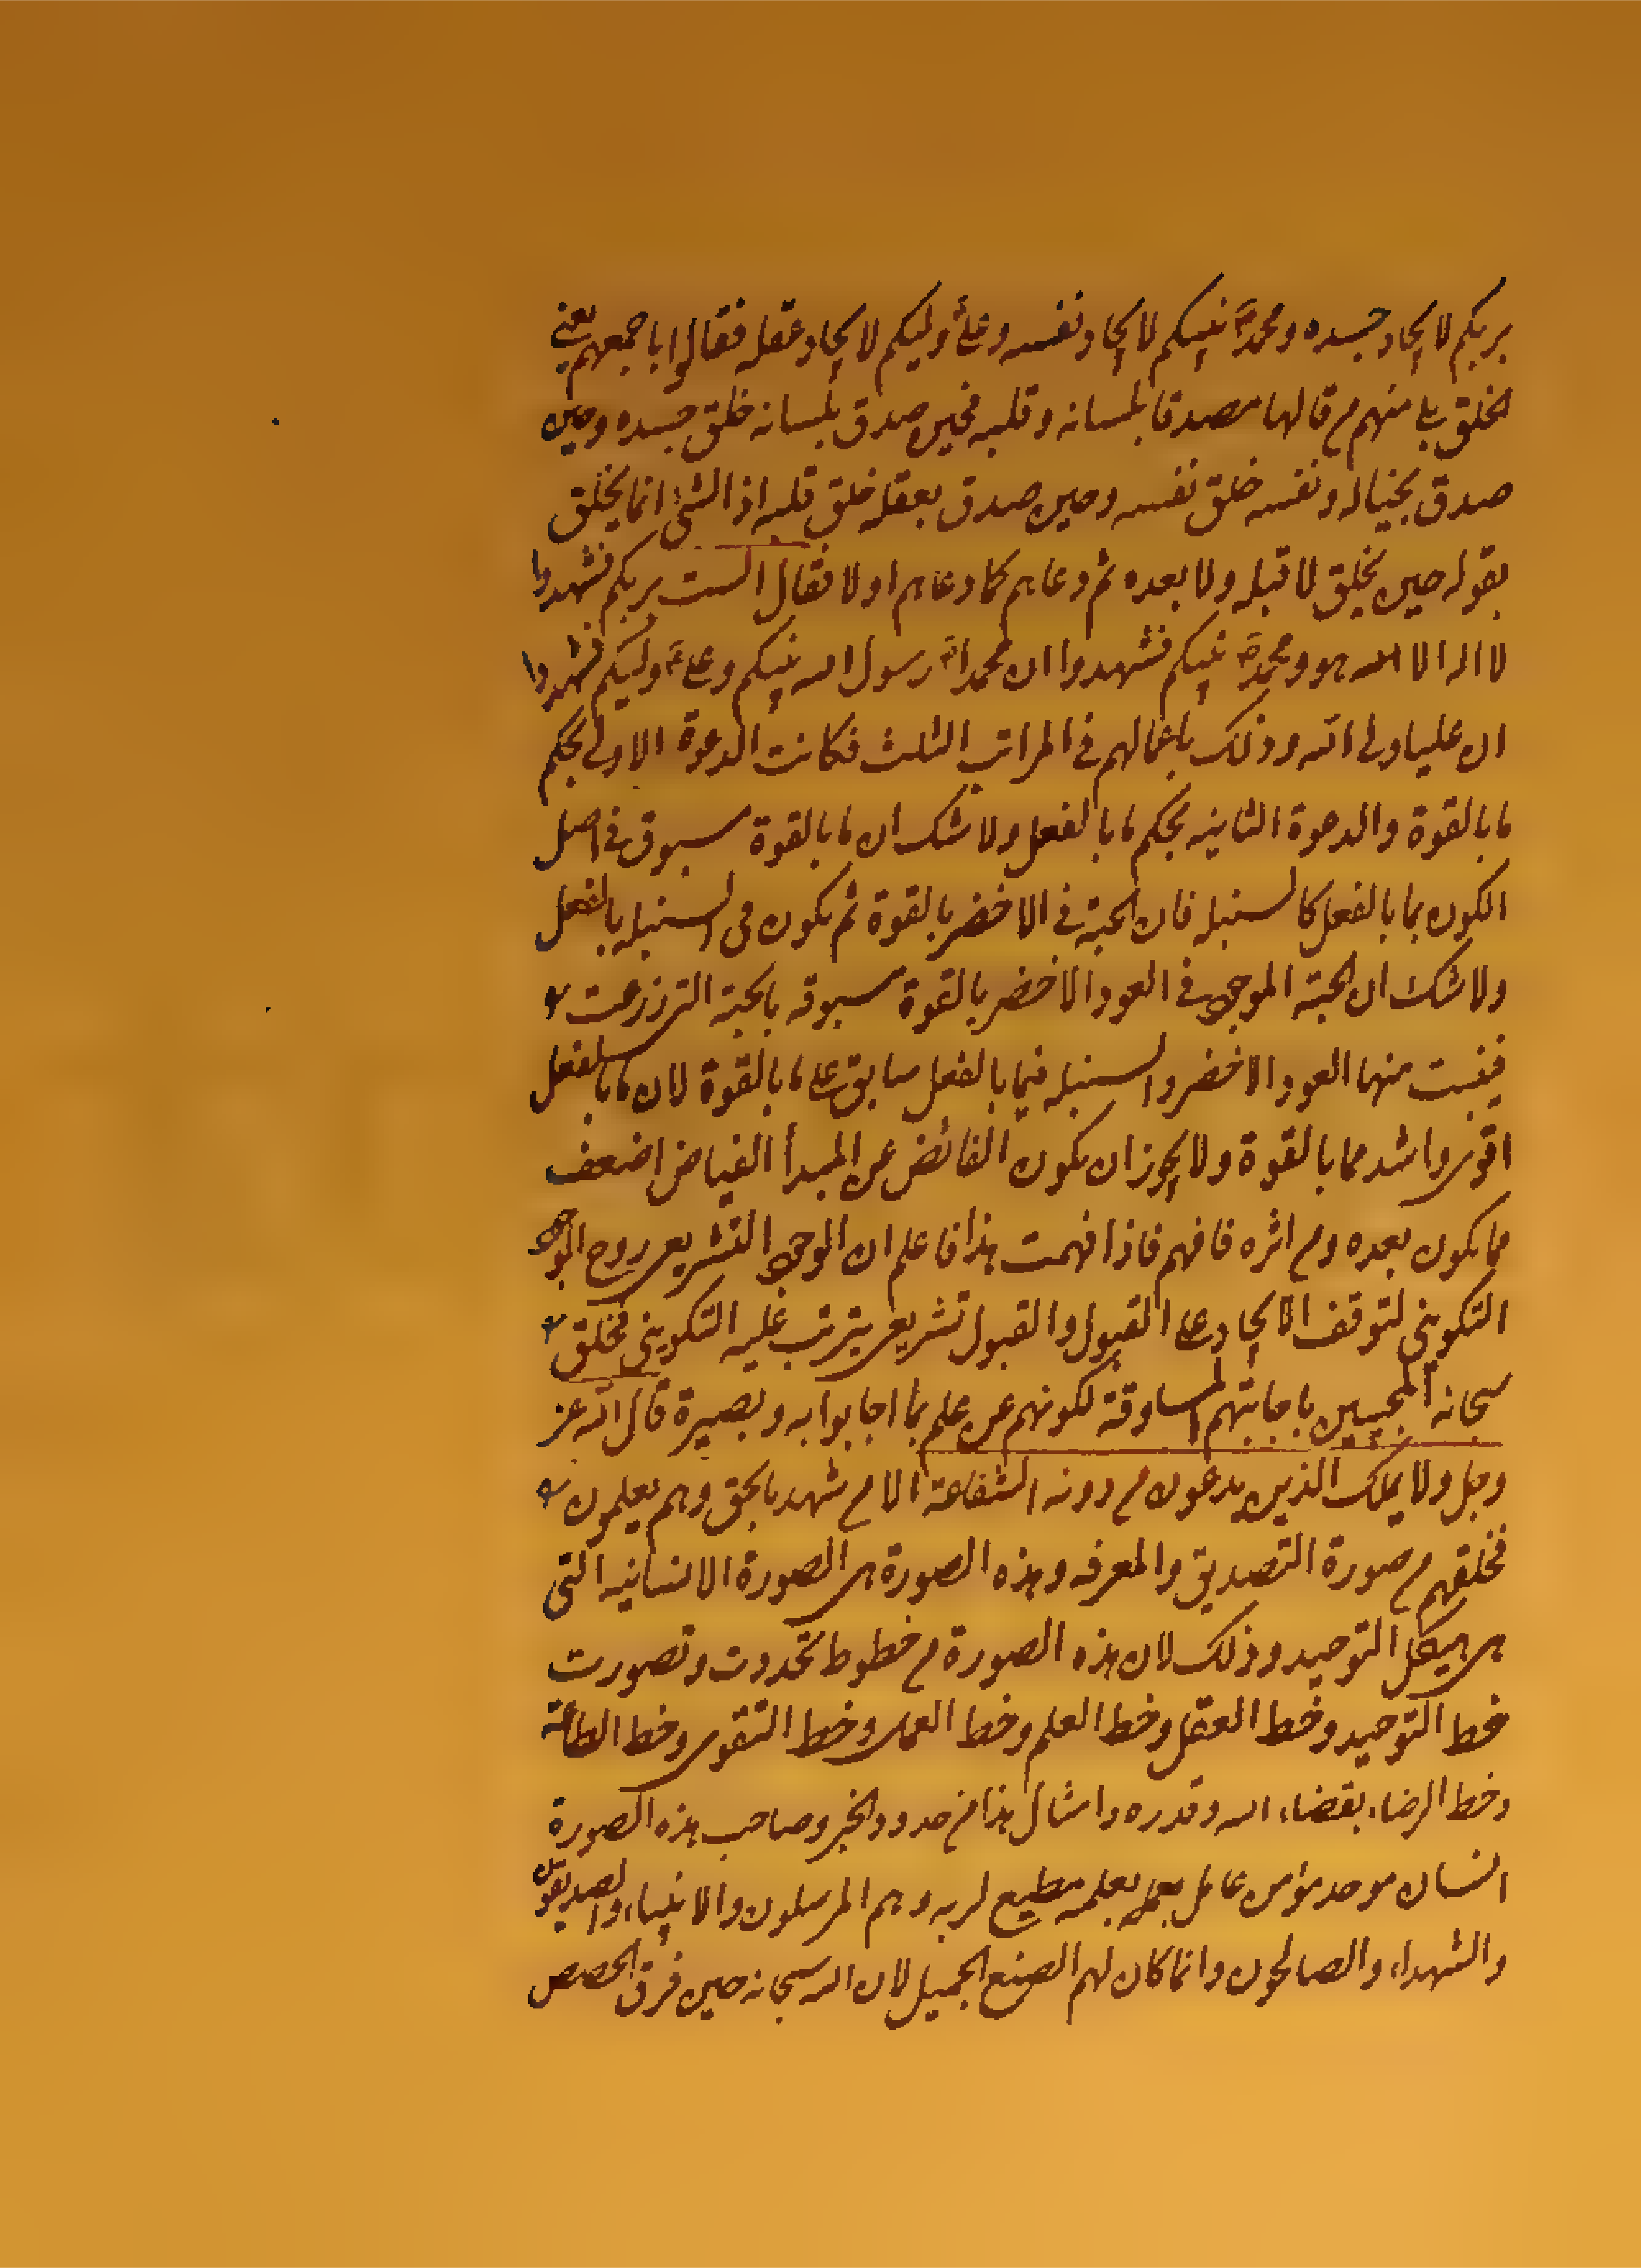 بربكم لايجاد جسده ومحمدٌ ص نبيكم لايجاد نفسه وعلي وليكم لايجاد عقله فقالوا باجمعهم يعني
الخلق بلى منهم من قالها مصدقا بلسانه وقلبه فحين صدق بلسانه خلق جسده وحين
صدق بخياله ونفسه خلق نفسه وحين صدق بعقله خلق قلبه اذ الشئ انما يخلق
بقوله حين يخلق لا قبله ولا بعده ثم دعاهم كما دعاهم اولا فقال الست بربكم فشهدوا
لا اله الا الله هو ومحمد ص نبيكم فشهدوا ان محمدا ص رسول الله نبيكم وعلي ع وليكم فشهدوا
ان عليا ولي الله وذلك باعمالهم في المراتب الثلث فكانت الدعوة الاولى بحكم
ما بالقوة والدعوة الثانيه بحكم ما بالفعل ولا شك ان ما بالقوة مسبوق في اصل
الكون بما بالفعل كالسنبله فان الحبة في الاخضر بالقوة ثم يكون في السنبله بالفعل
ولا شك ان الحبة الموجوده في العود الاخضر بالقوة مسبوقه بالحبة التي زرعت
فنبت منها العود الاخضر والسنبله فيما بالفعل سابق على ما بالقوة لان ما بالفعل
اقوى واشد مما بالقوة ولا يجوز ان يكون الفائض عن المبدأ الفياض اضعف
مما يكون بعده ومن اثره فافهم فاذا فهمت هذا فاعلم ان الوجود التشريعي روح الوجود
التكويني لتوقف الايجاد على القبول والقبول تشريعي يترتب عليه التكويني فخلق
سبحانه المجيبين باجابتهم المساوقة لكونهم عن علم بما اجابوا به وبصيرة قال الله عز
وجل ولا يملك الذين يدعون من دونه الشفاعة الا من شهد بالحق وهم يعلمون
فخلقهم من صورة التصديق والمعرفه وهذه الصورة هي الصورة الانسانيه التي
هي هيكل التوحيد وذلك لان هذه الصورة من خطوط تحددت وتصورت
خط التوحيد وخط العقل وخط العلم وخط العمل وخط التقوى وخط الطاعة
وخط الرضاء بقضاء الله وقدره وامثال هذا من حدود الخير وصاحب هذه الصورة
انسان موحد مؤمن عامل بعمله بعلمه مطيع لربه وهم المرسلون والانبياء والصديقون
والشهداء والصالحون وانما كان لهم الصنع الجميل لان الله سبحانه حين فرق الحصص